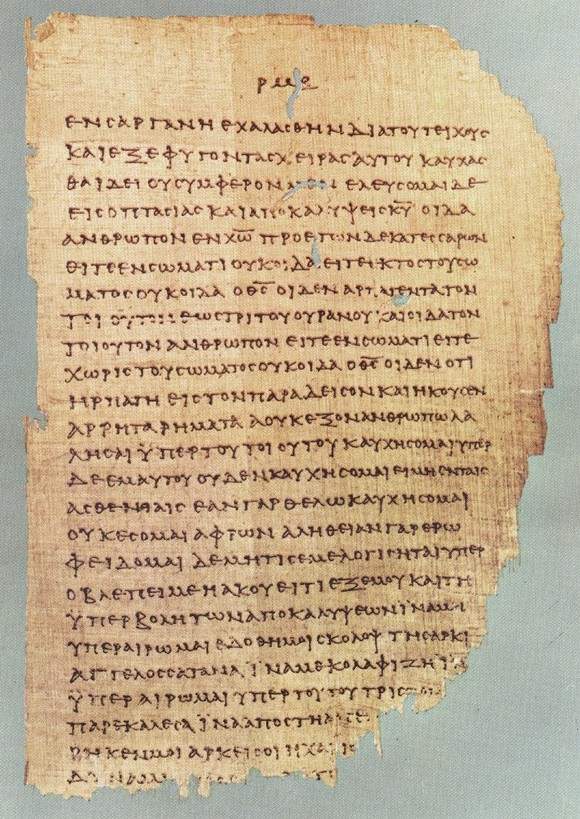 ρμε
ενϲαργανηεχαλαϲθηνδιατουτειχουϲ
καιεξεφυγονταϲχειραϲαυτουκαυχαϲ
θαιδειουϲυμφερονμενελευϲομαιδε
ειϲοπταϲιαϲκαιαποκαλυψειϲκ̅υ̅οιδα
ανθρωπονενχ̅ω̅προετωνδεκατεϲϲαρων
ειτεενϲωματιουκοιδαειτεεκτοϲτουϲω
ματοϲουκοιδαοθ̅ϲ̅οιδεναρπαγεντατον
τοιουτονεωϲτριτουουρανουκαιοιδατον
τοιουτονανθρωπονειτεενϲωματιειτε
χωριϲτουϲωματοϲουκοιδαοθ̅ϲ̅οιδενοτι
ηρπαγηειϲτονπαραδειϲονκαιηκουϲεν
αρρηταρηματααουκεξονανθρωπωλα
ληϲαιϋπερτουτοιουτουκαυχηϲομαιυπερ
δεεμαυτουουδενκαυχηϲομαιειμηενταιϲ
αϲθενειαιϲεανγαρθελωκαυχηϲομαι
ουκεϲομαιαφρωναληθειανγαρερω
φειδομαιδεμητιϲεμελογιϲηταιυπερ
οβλεπειμεηακουειτιεξεμουκαιτη
ϋπερβολητωναποκαλυψεωνϊναμη
υπεραιρωμαιεδοθημοιϲκολοψτηϲαρκι
αγγελοϲϲαταναϊναμεκολαφιζηϊνα
ϋπεραιρωμαιυπερτουτουτριϲ
παρεκαλεϲαϊνααποϲτηα
ρηκενμοιαρκειϲοιηχαρις
δυναμ